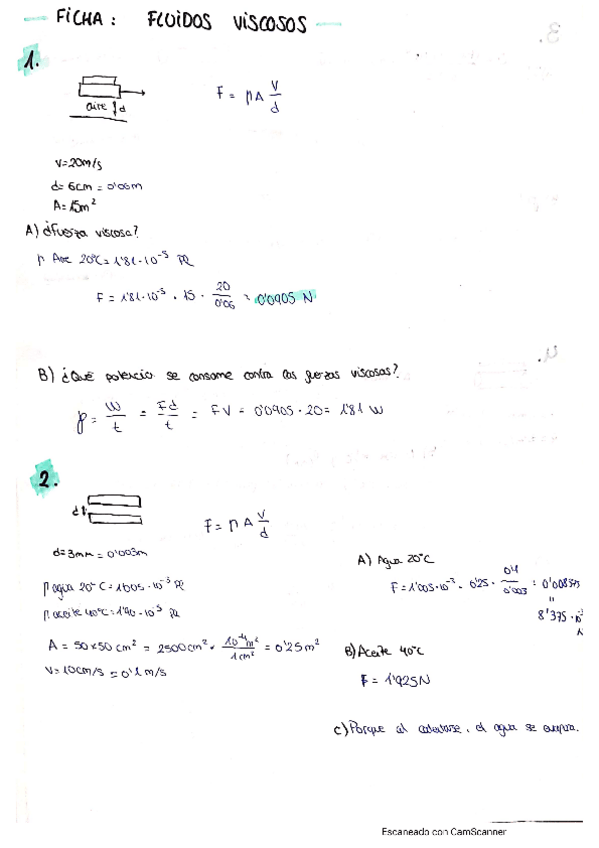 FICHA: FLUIDOS VISCOSOS
1.
aire d
F = η A v/d
v=20m/s
d= 6cm = 0'06m
A= 15m²
A) ¿Fuerza viscosa?
η Aire 20°C = 1'81·10⁻⁵ Pl
F = 1'81·10⁻⁵ · 15 · 20/0'06 = 0'0905 N
B) ¿Qué potencia se consume contra las fuerzas viscosas?
P = W/t = Fd/t = FV = 0'0905 · 20 = 1'81 W
2.
d
F = η A v/d
d= 3mm = 0'003m
η agua 20°C = 1'005 · 10⁻³ Pl
η aceite 40°C =
A = 50x50 cm² = 2500cm² · 10⁻⁴m²/1cm² = 0'25m²
V= 10cm/s = 0'1m/s
A) Agua 20°C
F= 1'005·10⁻³ · 0'25 · 0'1/0'003 = 0'008375
"
8'375 · 10⁻³
N
B) Aceite 40°C
F = 1'925N
c) Porque al calentarse, el agua se evapora.
Escaneado con CamScanner